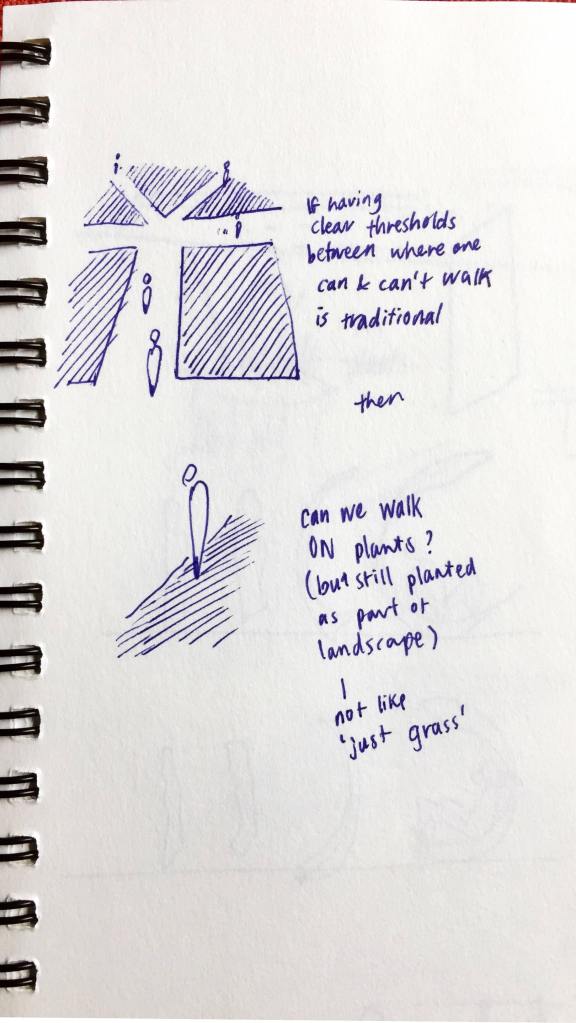 If having
clear thresholds
between where one
can & can't walk
is traditional
then
can we walk
ON plants?
(but still planted
as part of
landscape)
not like
'just grass'